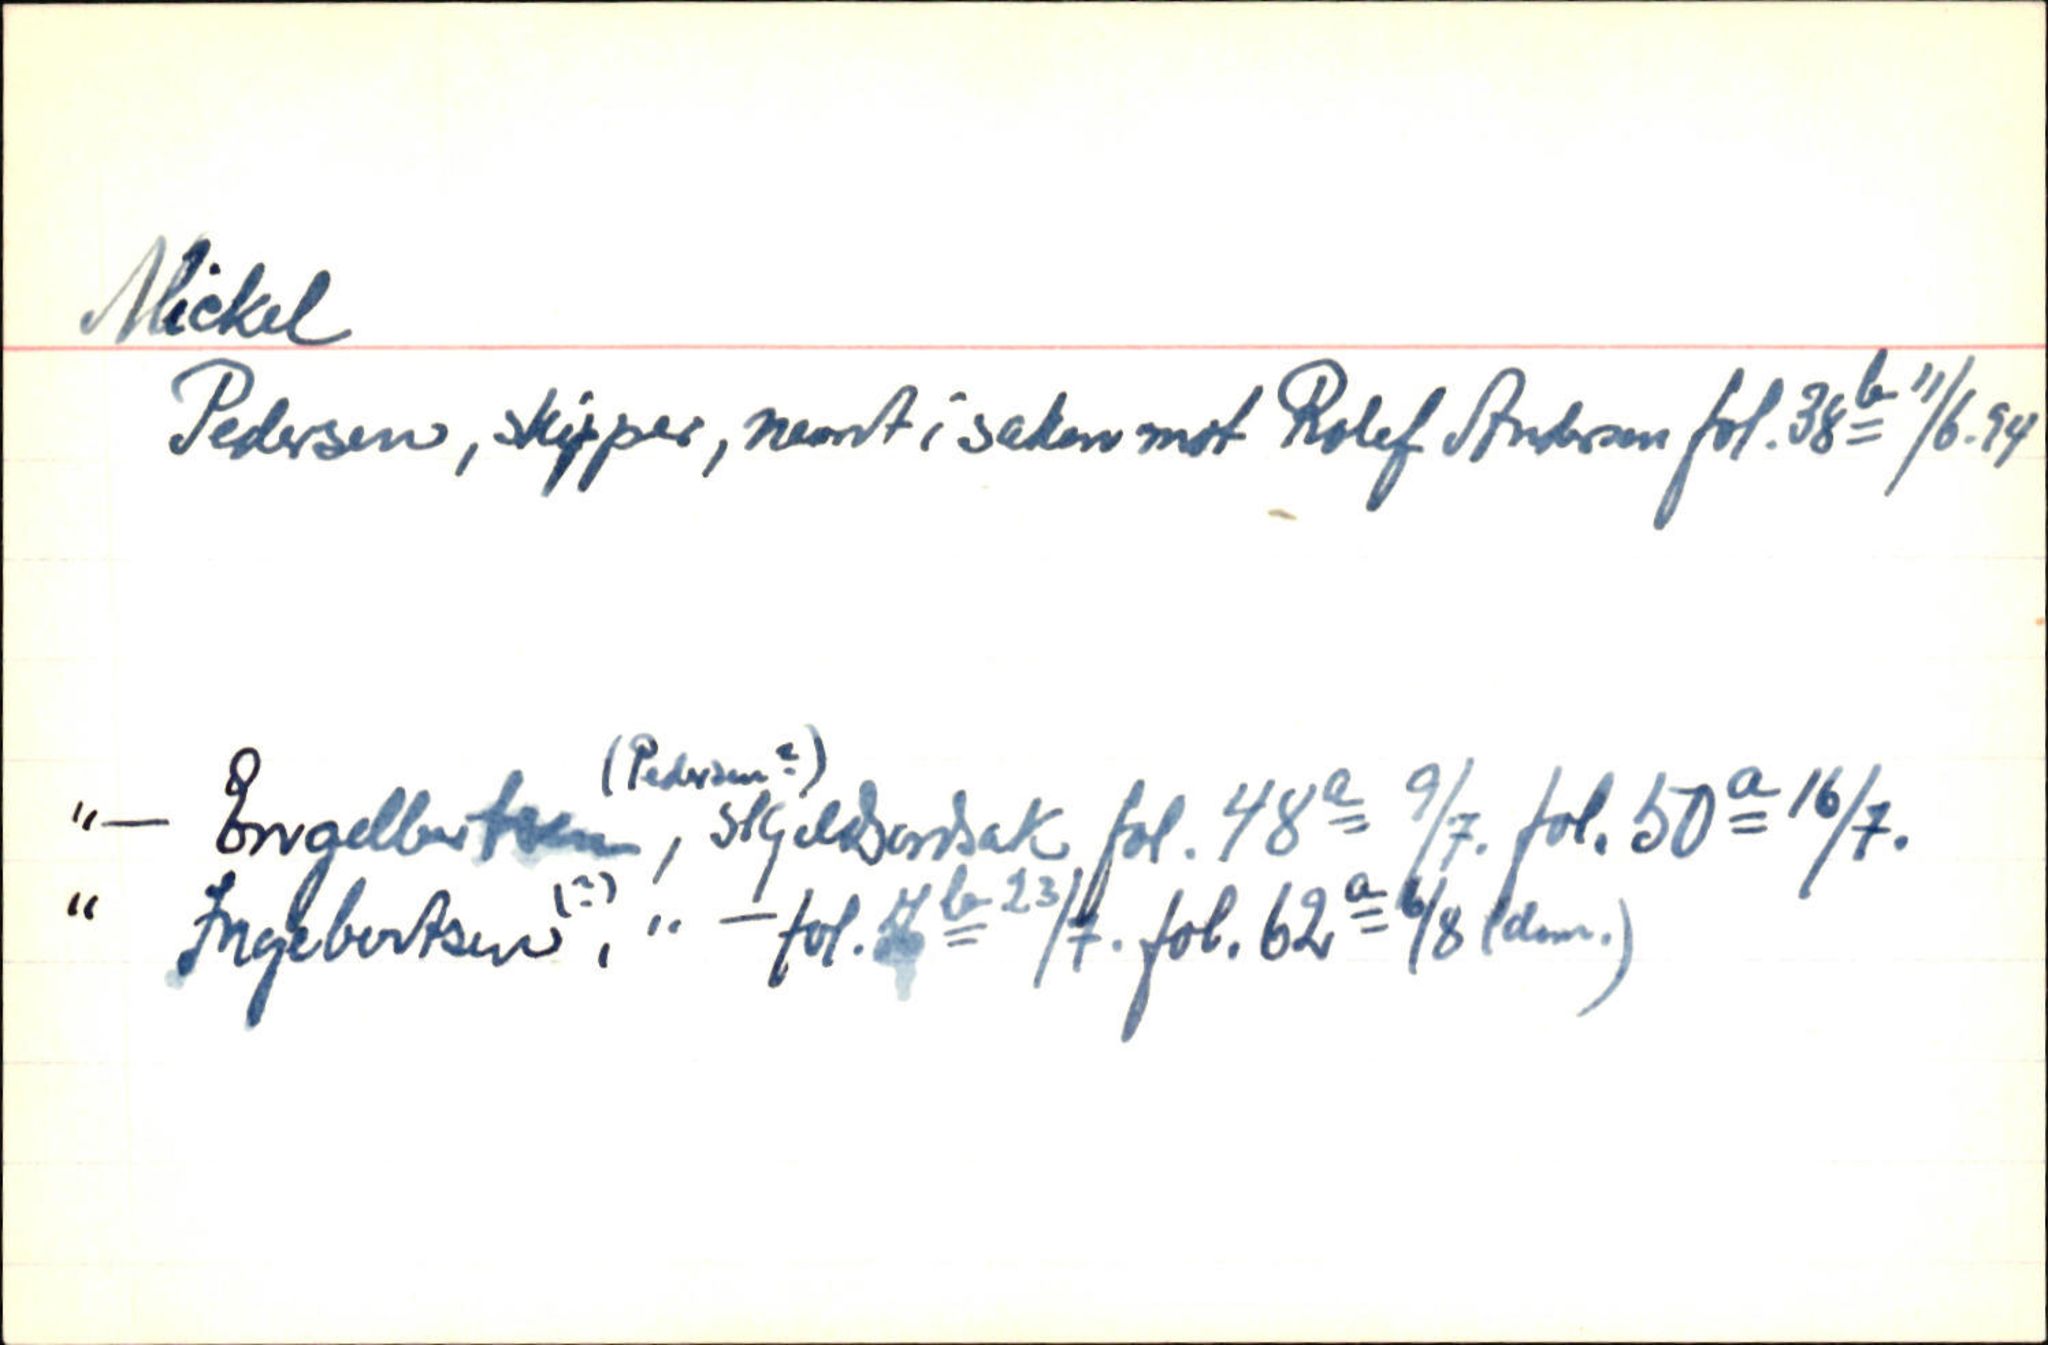 Mickel
Pedersen, skipper, nevnt i saken mot Rolef Andersen fol. 38b 11/6.94
(Pedersen?)
"— Engelbertsen, skjeldsordsak fol. 48a 9/7. fol. 50a 16/7.
" Ingebertsen (?), " — fol. b 23/7. fol. 62a 6/8 (dom.)